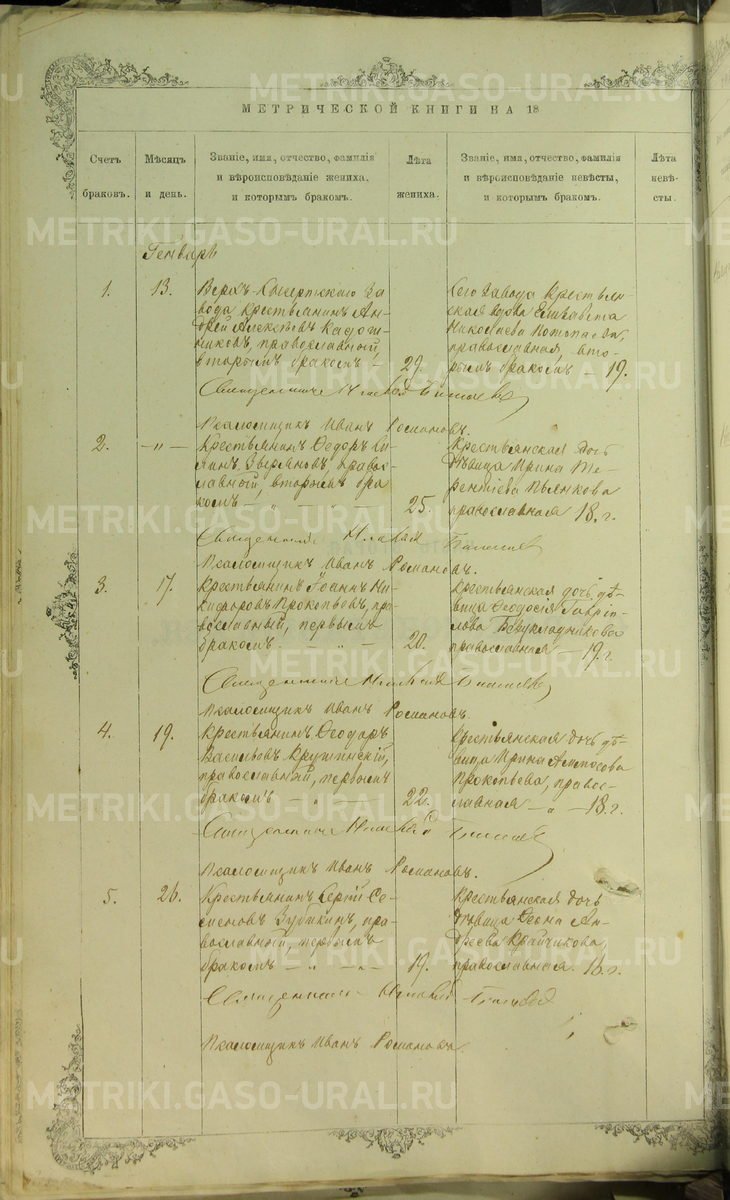 МЕТРИЧЕСКОЙ КНИГИ НА 18
Счетъ браковъ.
Мѣсяцъ и день.
Званіе, имя, отчество, фамилія и вѣроисповѣданіе жениха, и которымъ бракомъ.
Лѣта жениха.
Званіе, имя, отчество, фамилія и вѣроисповѣданіе невѣсты, и которымъ бракомъ.
Лѣта невѣсты.
Генварь
1.
13.
Верхъ-Сысертскаго За
вода крестьянинъ Ан
дрей Алексѣевъ
никовъ, православный,
вторымъ бракомъ —
29.
Сего Завода Крестьян
ская вдова Елизавета
Николаева
православная, вто
рымъ бракомъ — 19.
Священникъ
Псаломщикъ Иванъ Романовъ.
2.
— „ —
Крестьянинъ Ѳедоръ
православный, вторымъ бра
комъ — „ —
25.
Крестьянская дочь
дѣвица Ирина Те
рентіева Пьянкова
православная 18. г.
Священникъ
Псаломщикъ Иванъ Романовъ.
3.
17.
Крестьянинъ Іоаннъ Ни
кифоровъ Прокопьевъ, пра
вославный, первымъ
бракомъ. — „ —
20.
Крестьянская дочь дѣ-
вица Ѳеодосія Гавріи
лова Безукладникова
православная — 19. г.
Священникъ
Псаломщикъ Иванъ Романовъ.
4.
19.
Крестьянинъ Ѳеодоръ
Васильевъ
православный, первымъ
бракомъ — „ —
22.
Крестьянская дочь дѣ-
вица Ирина
Прокопьева, правос-
лавная — „ — 18. г.
Священникъ
Псаломщикъ Иванъ Романовъ.
5.
26.
Крестьянинъ Сергій Се
меновъ Зубикинъ, пра-
вославный, первымъ
бракомъ — „ — „ —
19.
Крестьянская дочь
дѣвица Ан
дреева Крайчикова,
православная. 18. г.
Священникъ
Псаломщикъ Иванъ Романовъ
METRIKI.GASO-URAL.RU